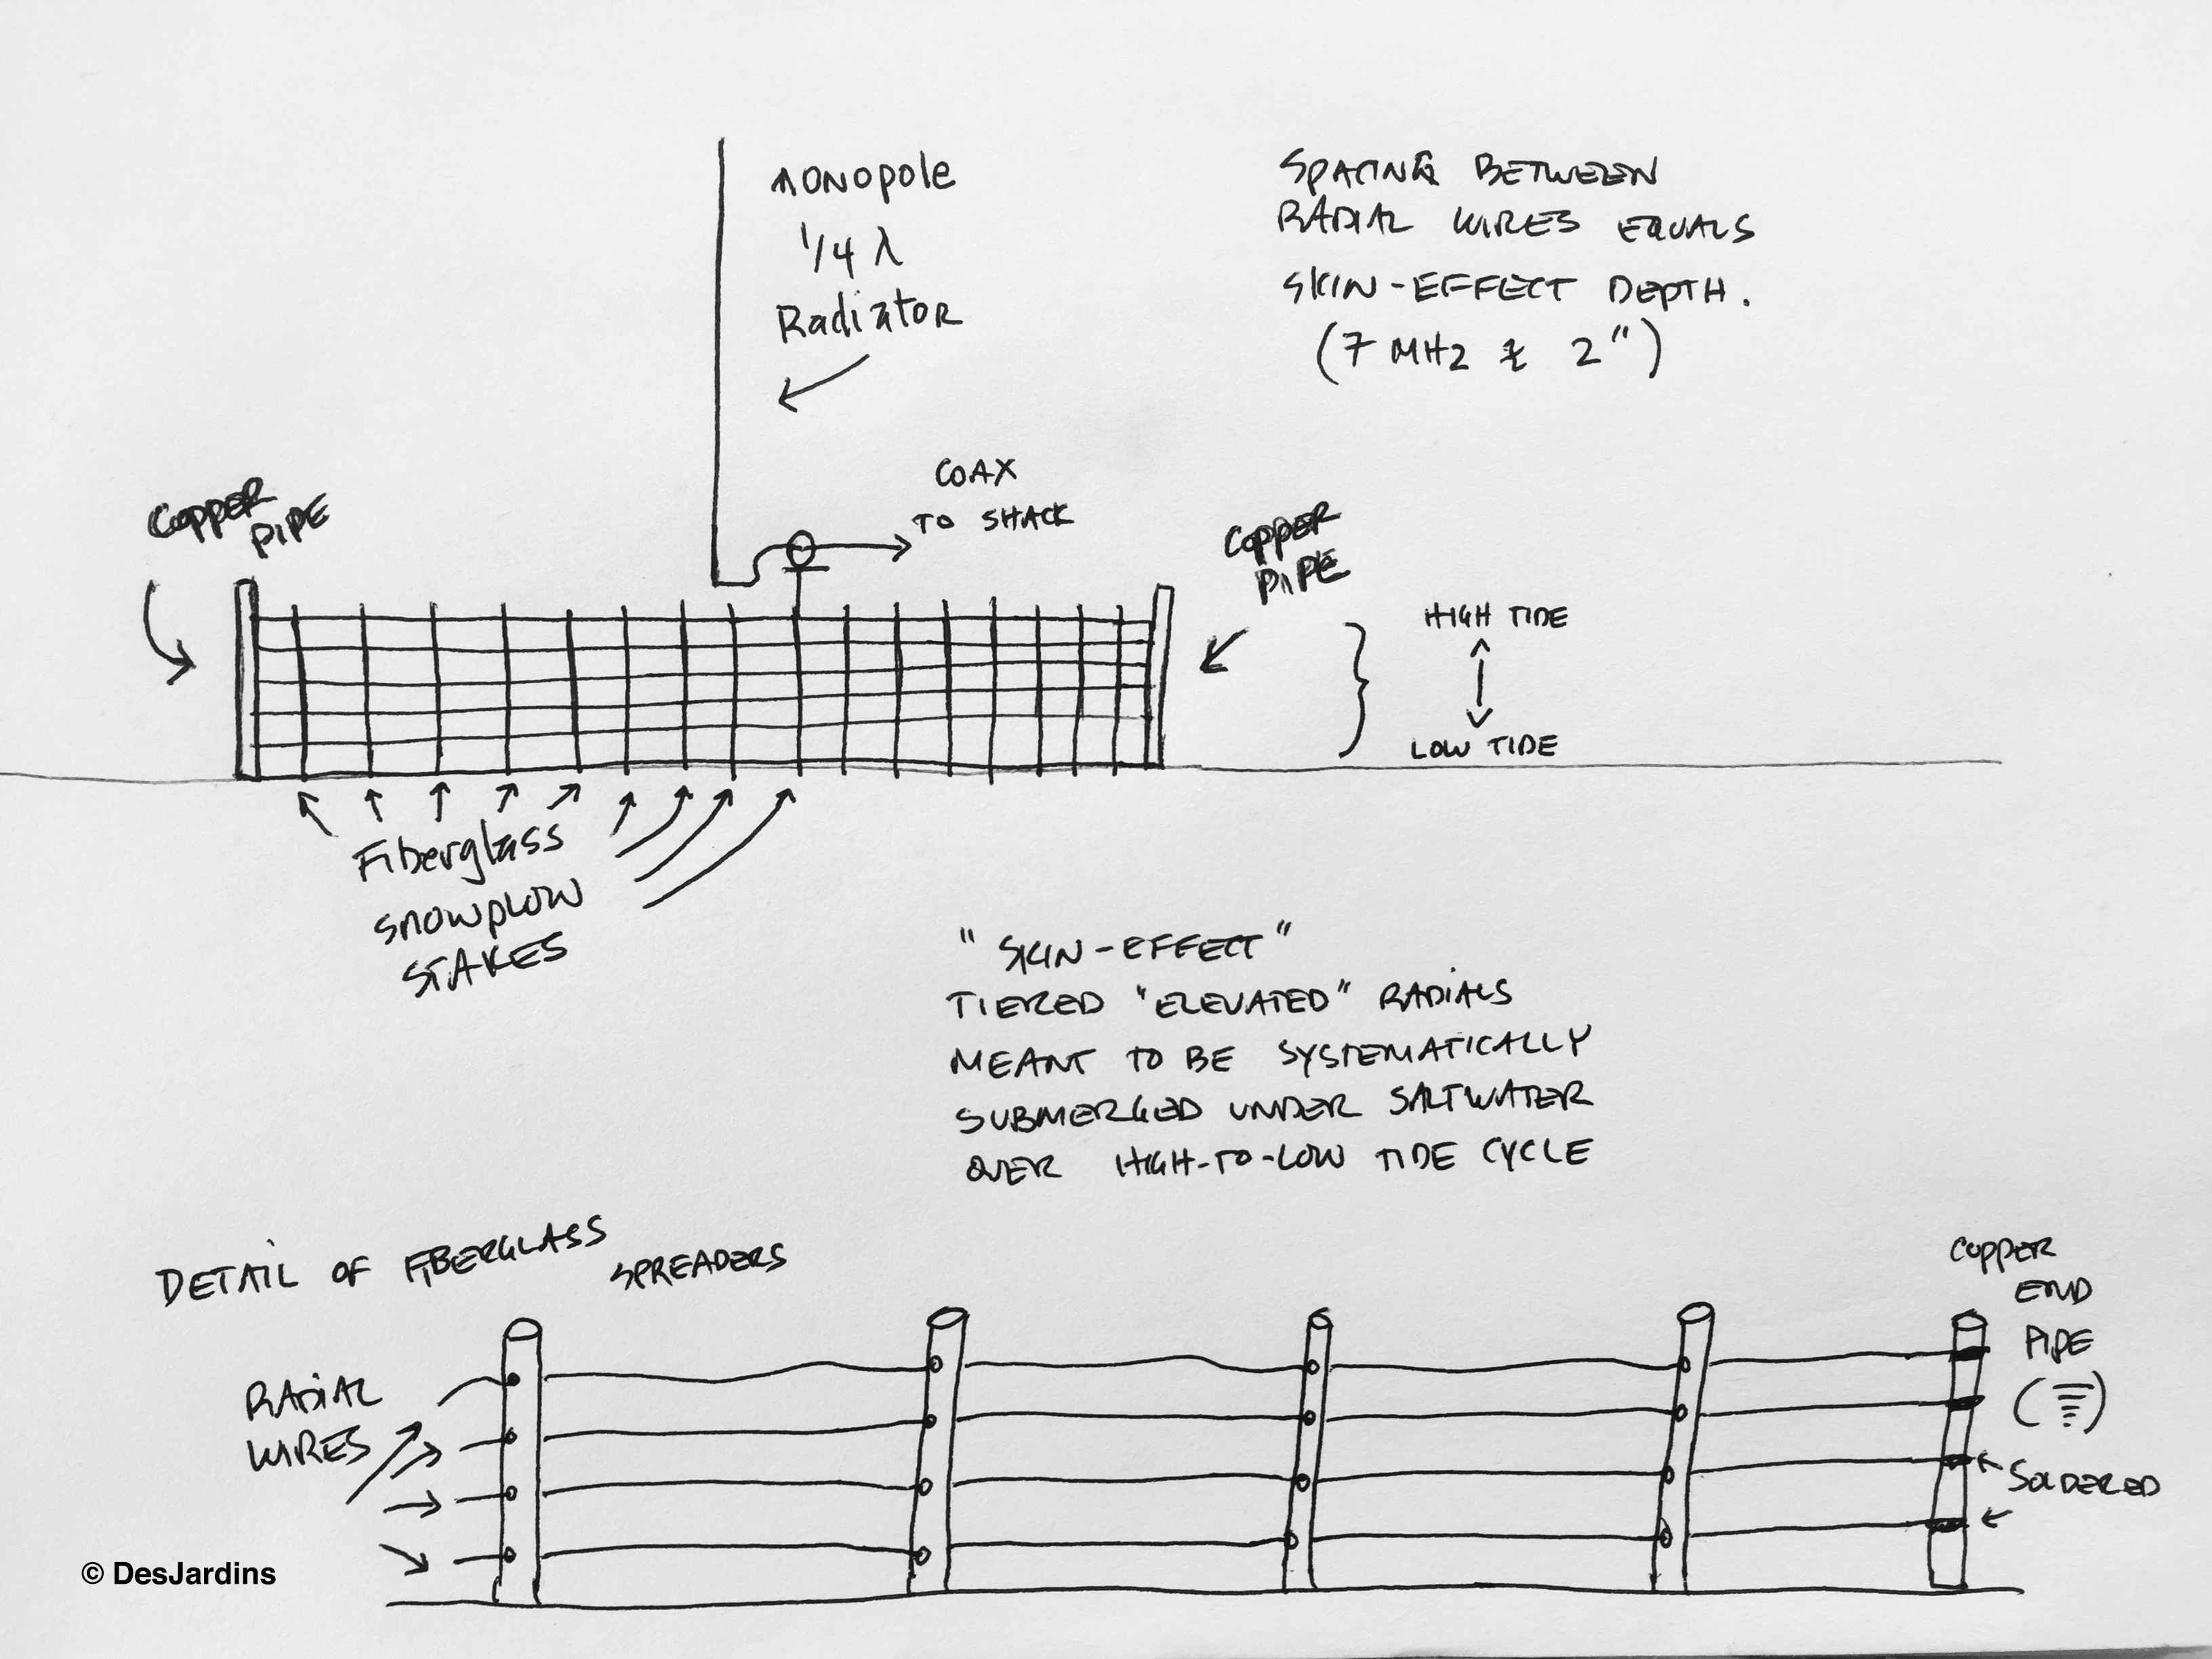 MONOpole
1/4 λ
RadiatoR
SPACING BETWEEN
RADIAL WIRES EQUALS
SKIN-EFFECT DEPTH.
(7 MHz ≈ 2")
COAX
TO SHACK
COPPER
PIPE
COPPER
PIPE
HIGH TIDE
LOW TIDE
Fiberglass
SNOWPLOW
STAKES
"SKIN-EFFECT"
TIERED "ELEVATED" RADIALS
MEANT TO BE SYSTEMATICALLY
SUBMERGED UNDER SALTWATER
OVER HIGH-TO-LOW TIDE CYCLE
DETAIL OF FIBERGLASS
SPREADERS
COPPER
END
PIPE
RADIAL
WIRES
SOLDERED
© DesJardins